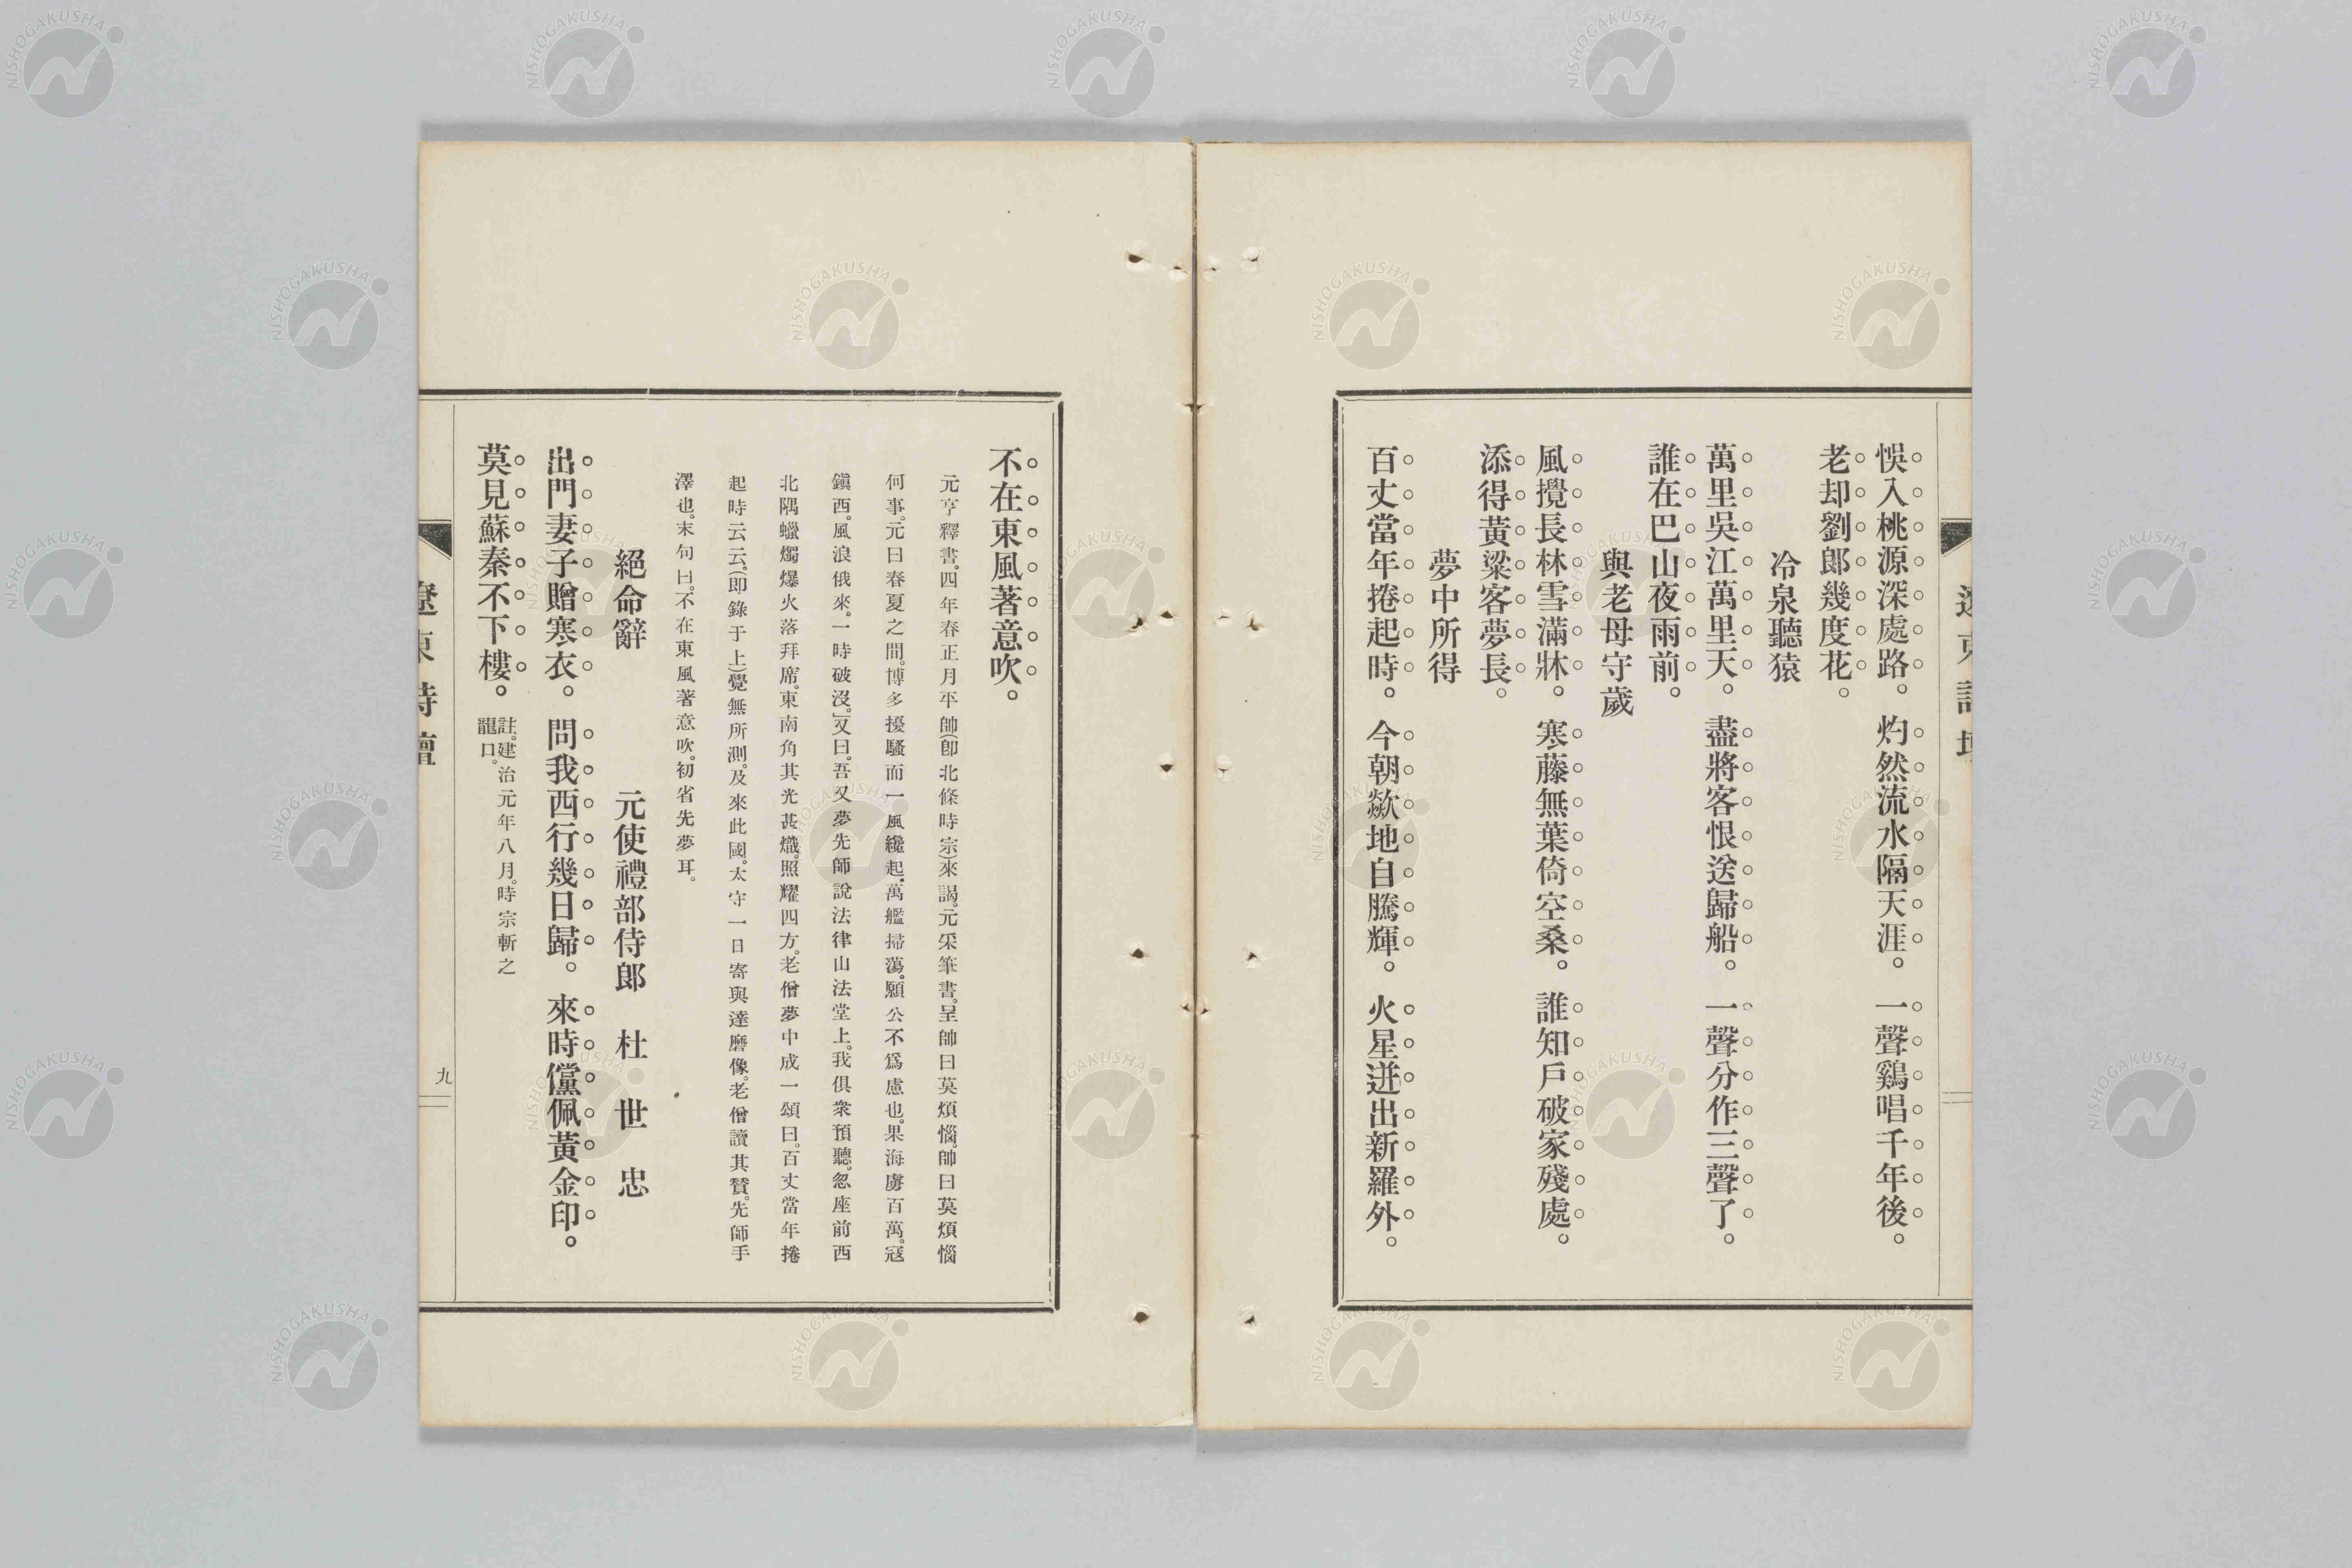 悞入桃源深處路。灼然流水隔天涯。一聲鷄唱千年後。
老却劉郞幾度花。
冷泉聽猿
萬里吳江萬里天。盡將客恨送歸船。一聲分作三聲了。
誰在巴山夜雨前。
與老母守歲
風攪長林雪滿牀。寒藤無葉倚空桑。誰知戶破家殘處。
添得黃粱客夢長。
夢中所得
百丈當年捲起時。今朝歘地自騰輝。火星迸出新羅外。
不在東風著意吹。
元亨釋書。四年春正月平帥(卽北條時宗)來謁。元采筆書。呈帥曰莫煩惱。帥曰莫煩惱
何事。元曰春夏之間。博多擾騷而一風纔起。萬艦掃蕩。願公不爲慮也。果海虜百萬。寇
鎭西。風浪俄來。一時破沒。又曰。吾又夢先師說法律山法堂上。我俱衆預聽。忽座前西
北隅蠟燭爆火落拜席。東南角其光甚熾。照耀四方。老僧夢中成一頌曰。百丈當年捲
起時云云。(卽錄于上)覺無所測。及來此國。太守一日寄與達磨像。老僧讀其贊。先師手
澤也。末句曰。不在東風著意吹。初省先夢耳。
絕命辭　元使禮部侍郞　杜世忠
出門妻子贈寒衣。問我西行幾日歸。來時儻佩黃金印。
莫見蘇秦不下樓。註。建治元年八月。時宗斬之
龍口。
遼東詩壇
九